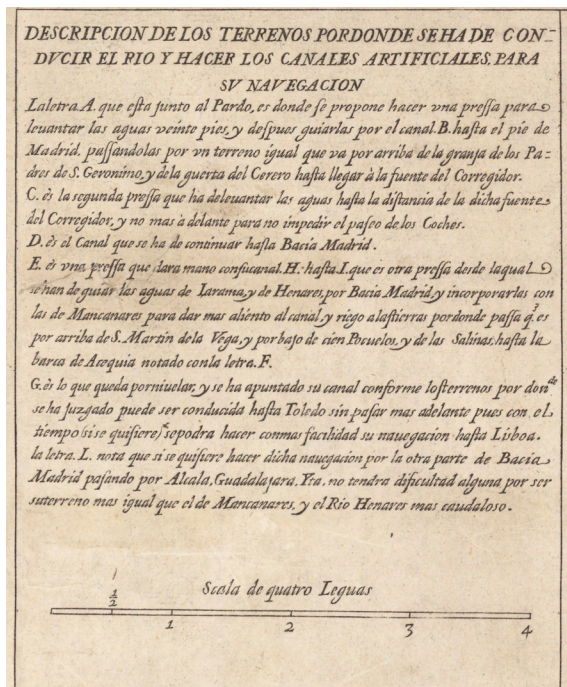 DESCRIPCION DE LOS TERRENOS POR DONDE SE HA DE CON-
DVCIR EL RIO Y HACER LOS CANALES ARTIFICIALES, PARA
SV NAVEGACION
La letra. A. que eſta junto al Pardo, es donde ſe propone hacer vna preſſa para
leuantar las aguas veinte pies, y deſpues guiarlas por el canal. B. haſta el pie de
Madrid, paſſandolas por vn terreno igual que va por arriba de la granja de los Pa-
dres de S. Geronimo, y de la guerta del Cerero haſta llegar à la fuente del Corregidor.
C. ès la segunda preſſa que ha de leuantar las aguas haſta la diſtancia de la dicha fuente
del Corregidor, y no mas à delante para no impedir el paſeo de los Coches.
D. ès el Canal que se ha de continuar haſta Bacia Madrid.
E. ès vna preſſa que dara mano con ſu canal. H. haſta I. que es otra preſſa desde la qual
se han de guiar las aguas de Iarama, y de Henares, por Bacia Madrid, y incorporarlas con
las de Mancanares para dar mas aliento al canal, y riego a las tierras por donde paſſa q̃. es
por arriba de S. Martin de la Vega, y por bajo de cien Pocuelos, y de las Salinas, haſta la
barca de Acequia notado con la letra. F.
G. ès lo que queda por niuelar, y se ha apuntado su canal conforme los terrenos por donde
se ha juzgado puede ser conducida haſta Toledo sin paſar mas adelante pues con el
tiempo (si se quiſiere) se podra hacer con mas facilidad su nauegacion haſta Lisboa.
la letra. L. nota que si se quiſiere hacer dicha nauegacion por la otra parte de Bacia
Madrid paſando por Alcala, Guadalajara, Yta, no tendra dificultad alguna por ser
su terreno mas igual que el de Mancanares, y el Rio Henares mas caudaloso.
Scala de quatro Leguas
1/2
1 2 3 4